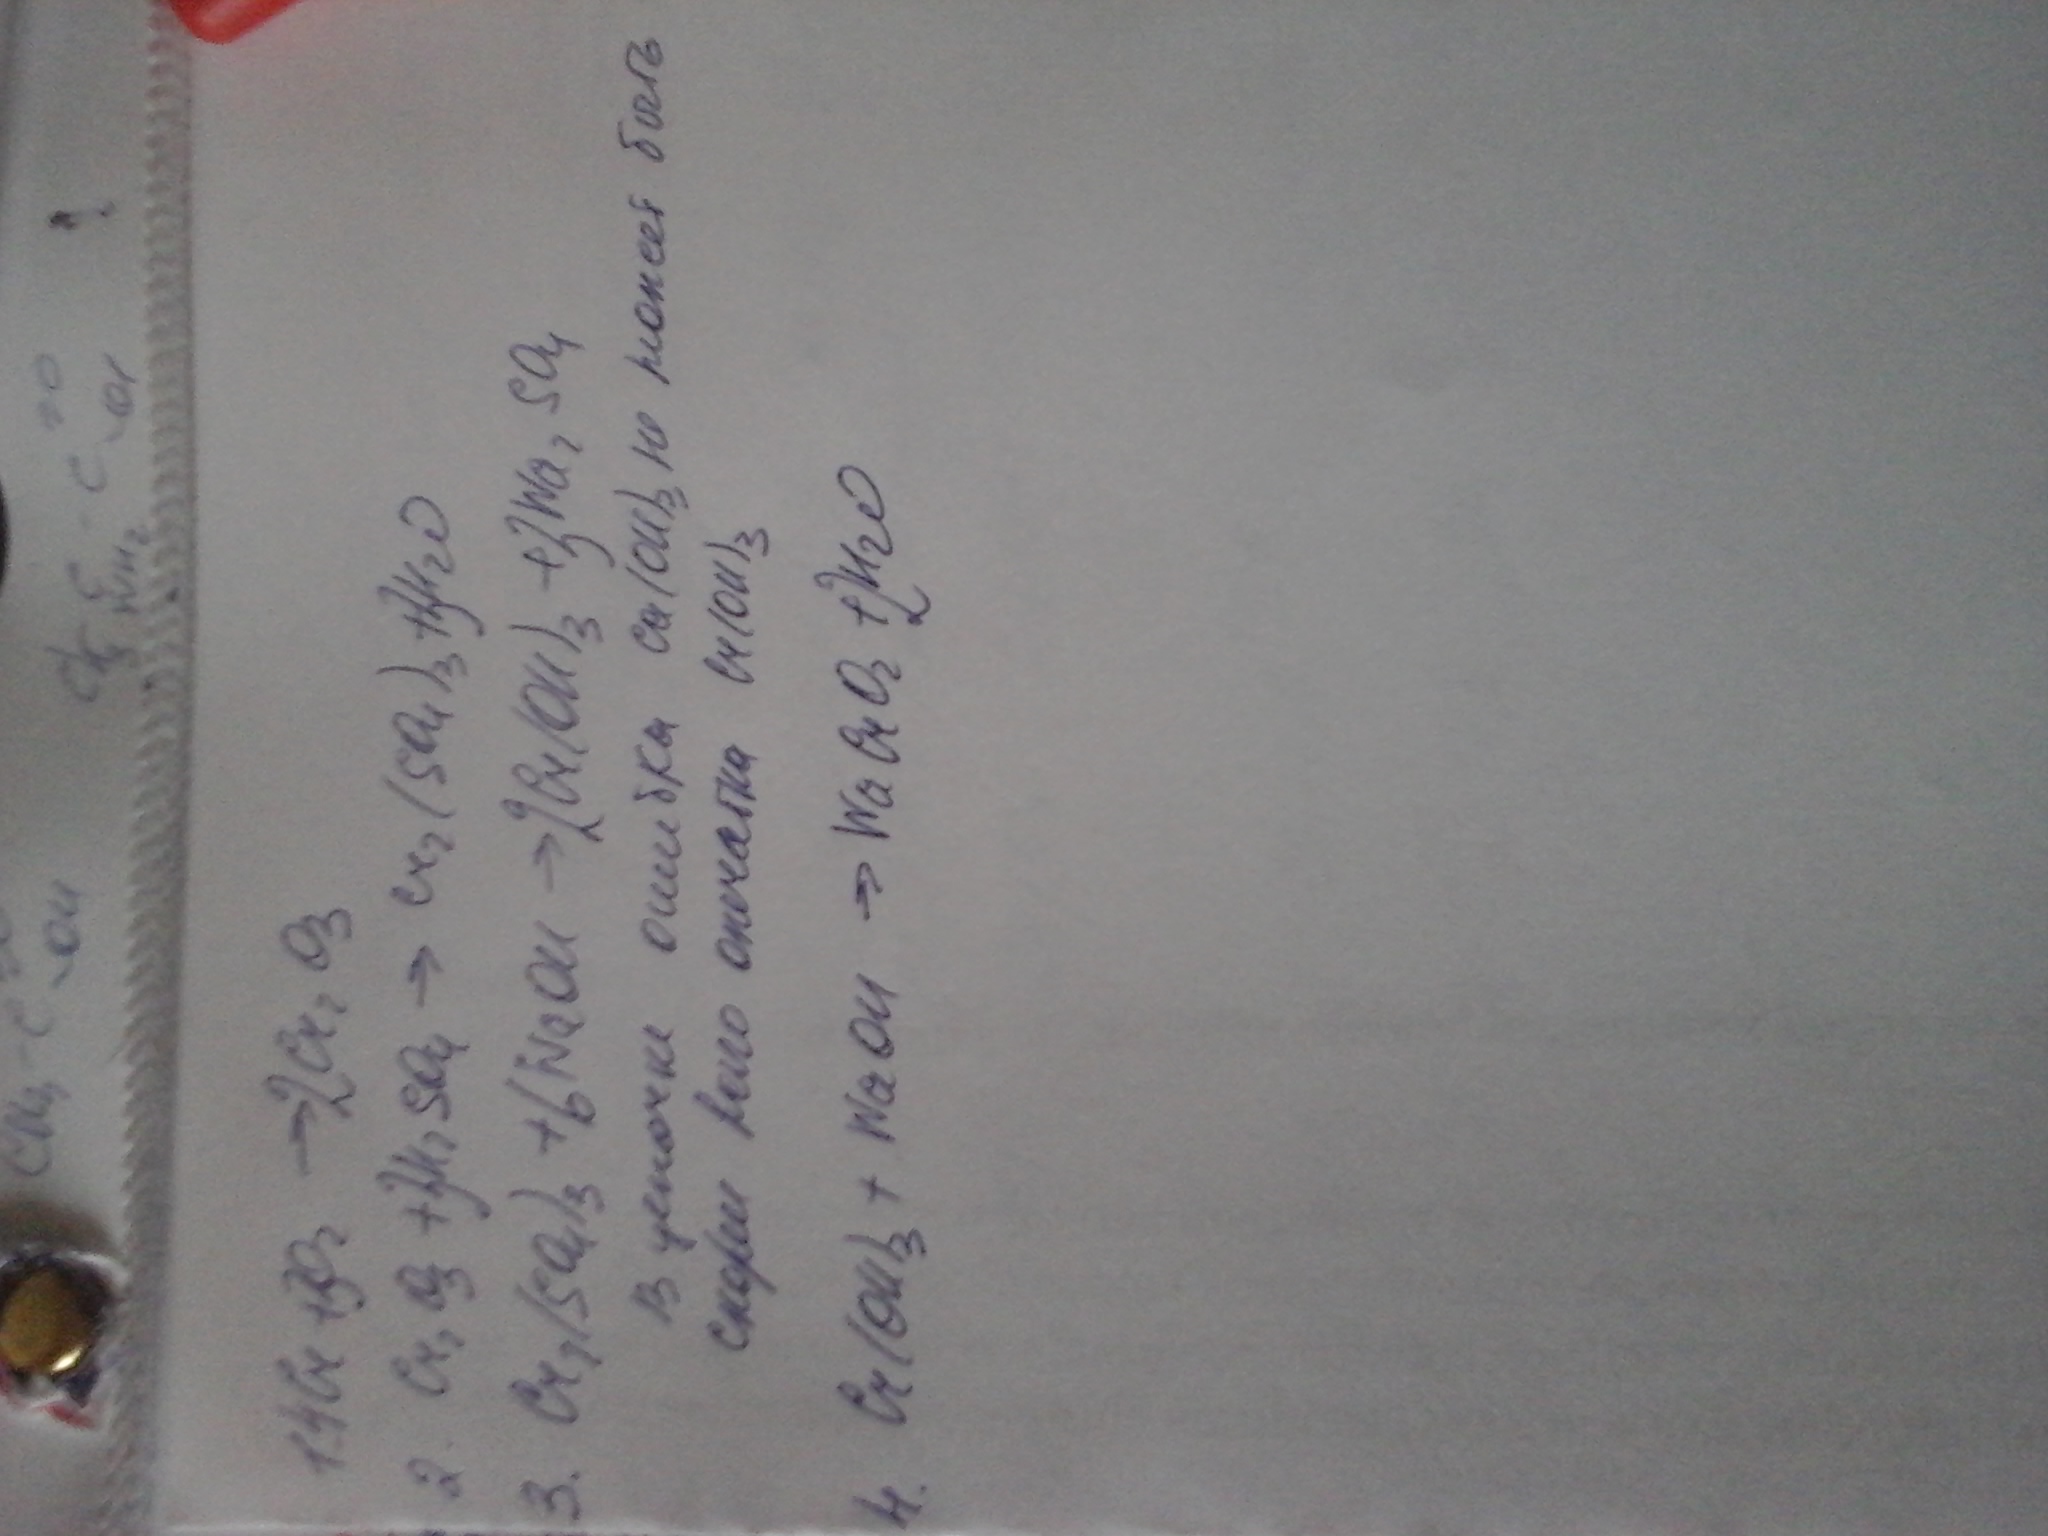 CH3 - C =O - OH
CH3 - C - C =O
NH2
1. 4Cr + 3O2 → 2Cr2O3
2. Cr2O3 + 3H2SO4 → Cr2(SO4)3 + 3H2O
3. Cr2(SO4)3 + 6NaOH → 2Cr(OH)3 + 3Na2SO4
В цепочке ошибка Ca(OH)3 не может быть
скорей всего опечатка Cr(OH)3
4. Cr(OH)3 + NaOH → NaCrO2 + 2H2O